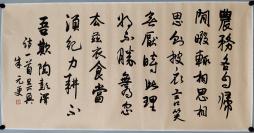 農務各自歸
閒暇輒相思相
思則披衣言笑
無厭時此理
將不勝無為忽
去茲衣食當
須紀力耕不
吾欺陶彭澤
詩一首